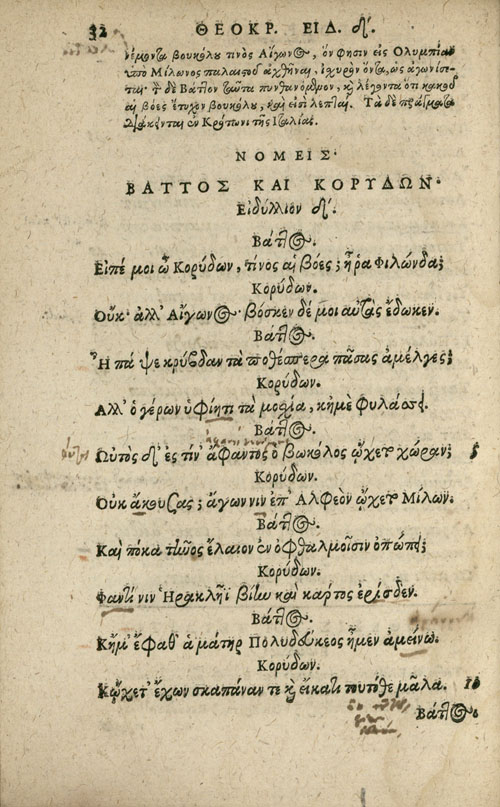 32 ΘΕΟΚΡ. ΕΙΔ. δʹ.
νέμοντα βουκόλου τινὸς Αἴγωνος, ὅν φησιν εἰς Ολυμπίαν
ὑπὸ Μίλωνος παλαιστοῦ ἀχθῆναι, ἰσχυρὸν ὄντα, ὡς ἀγωνίσε-
ται· τ δὲ Βάττον ταῦτα πυνθανόμενον, καὶ λέγοντα ὅτι κακοῦ
αἱ βόες ἔτυχον βουκόλου, καὶ εἰσὶ λεπταί. Τὰ δὲ πράγματα
διάκειται ἐν Κρότωνι τῆς Ιταλίας.
ΝΟΜΕΙΣ·
ΒΑΤΤΟΣ ΚΑΙ ΚΟΡΥΔΩΝ·
Εἰδύλλιον δʹ.
Βάττος.
Εἰπέ μοι ὦ Κορύδων, τίνος αἱ βόες; ἦ ῥα Φιλώνδα;
Κορύδων.
Οὔκ· ἀλλ' Αἴγωνος· βόσκεν δέ μοι αὐτὰς ἔδωκεν.
Βάττος.
Ἦ πά ψε κρύβδαν τὰ ποθέσπερα πάσας ἀμέλγες;
Κορύδων.
Αλλ' ὁ γέρων ὑφίητι τὰ μοσχία, κἠμὲ φυλάσσει.
Βάττος.
Ωὐτὸς δ' ἐς τίν' ἄφαντος ὁ βωκόλος ᾤχετο χώραν; 5
Κορύδων.
Οὐκ ἄκουσας; ἄγων νιν ἐπ' Αλφεὸν ᾤχετο Μίλων.
Βάττος.
Καὶ πόκα τῆνος ἔλαιον ἐν ὀφθαλμοῖσιν ὀπώπει;
Κορύδων.
Φαντί νιν Ἡρακλῆϊ βίην καὶ κάρτος ἐρίσδεν.
Βάττος.
Κἤμ' ἔφαθ' ἁ μάτηρ Πολυδεύκεος ἦμεν ἀμείνω.
Κορύδων.
Κᾤχετ' ἔχων σκαπάναν τε καὶ εἴκατι τουτόθε μᾶλα. 10
Βάττος.